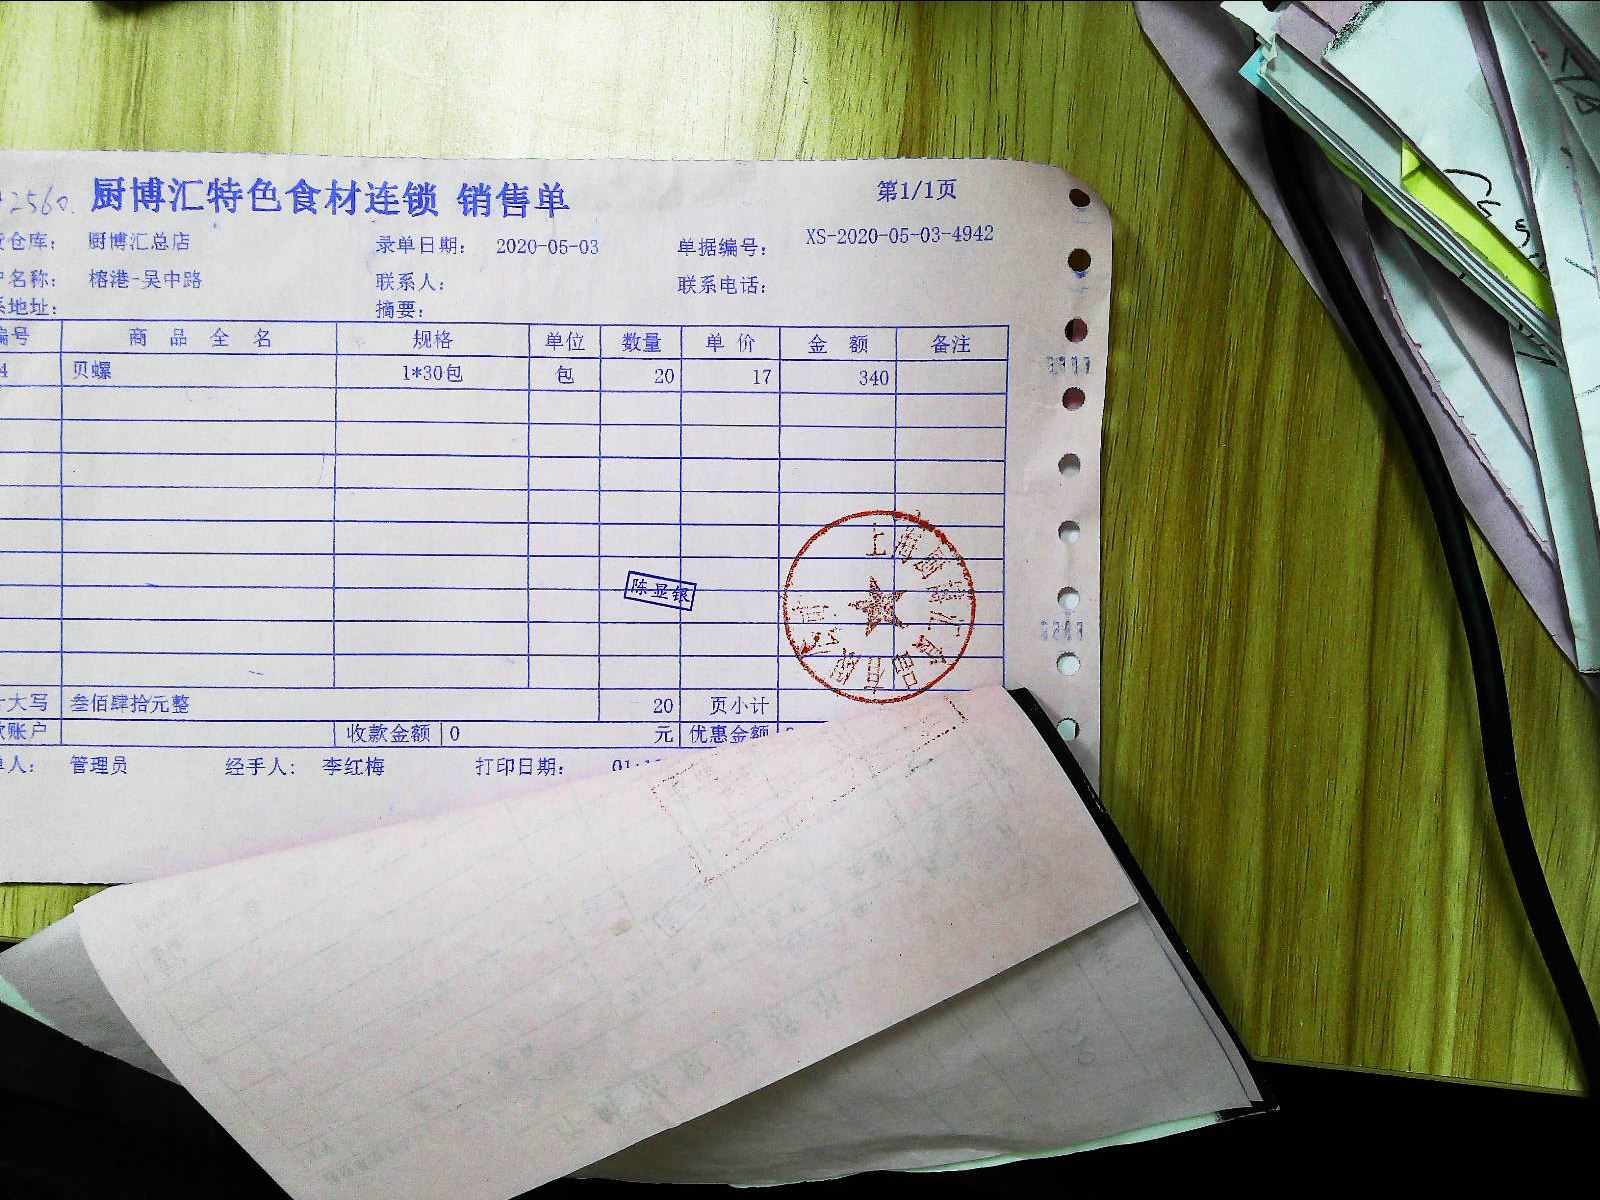 2560. 厨博汇特色食材连锁 销售单 第1/1页
仓库： 厨博汇总店 录单日期： 2020-05-03 单据编号： XS-2020-05-03-4942
名称： 榕港-吴中路 联系人： 联系电话：
地址： 摘要：
编号 商品全名 规格 单位 数量 单价 金额 备注
4 贝螺 1*30包 包 20 17 340
陈显银
上海厨博汇食品有限公司
大写 叁佰肆拾元整 20 页小计
账户 收款金额 0 元 优惠金额
人： 管理员 经手人： 李红梅 打印日期：